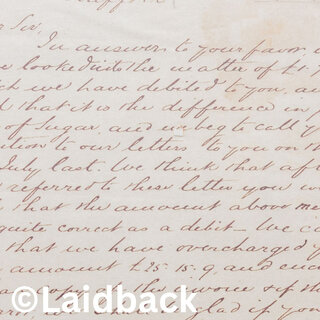 Sir,
In answer to your favor
looked into the matter of £1.
we have debited to you, an
that it is the difference in
of Sugar, and we beg to call y
to our letters to you on th
July last. We think that aft
referred to these letter you w
that the amount above me
quite correct as a debit – We
that we have overcharged y
amount £25.15.9, and enc
copy of the invoice
glad if you
©Laidback